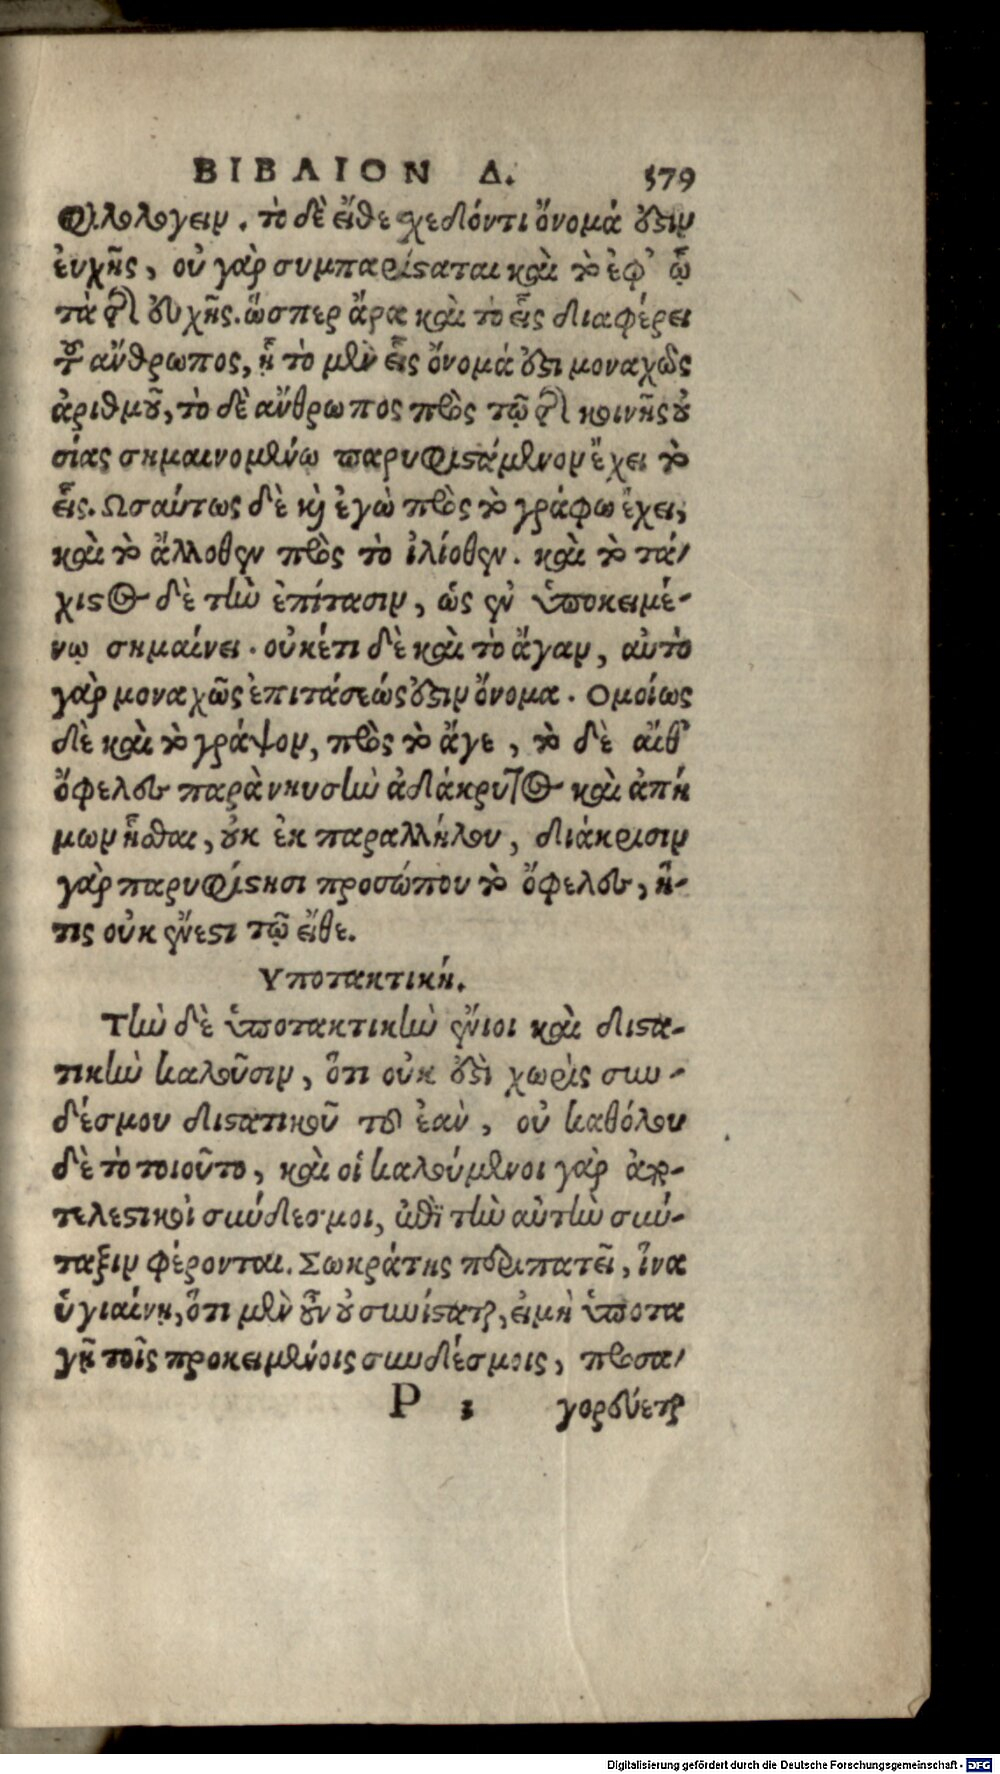 ΒΙΒΛΙΟΝ Δ. 579
φιλολογειν. τὸ δὲ εἴθε σχεδόντι ὄνομά ἐστιν
ἐυχῆς, οὐ γὰρ συμπαρίσαται καὶ τὸ ἐφ᾽ ᾧ
τὰ τῆς ἐυχῆς. ὥσπερ ἄρα καὶ τὸ εἷς διαφέρει
τοῦ ἄνθρωπος, ᾗ τὸ μὲν εἷς ὄνομά ἐστι μοναχῶς
ἀριθμοῦ, τὸ δὲ ἄνθρωπος πρὸς τῷ τῆς κοινῆς οὐ
σίας σημαινομένῳ παρυφιστάμενον ἔχει τὸ
εἷς. Ωσαύτως δὲ κὶ ἐγὼ πρὸς τὸ γράφω ἔχει,
καὶ τὸ ἄλλοθεν πρὸς τὸ ἰλίοθεν. καὶ τὸ τά-
χιστος δὲ τὴν ἐπίτασιν, ὡς ἐν ὑποκειμέ-
νῳ σημαίνει. οὐκέτι δὲ καὶ τὸ ἄγαν, αὐτὸ
γὰρ μοναχῶς ἐπιτάσεώς ἐστιν ὄνομα. Ομοίως
δὲ καὶ τὸ γράψον, πρὸς τὸ ἄγε, τὸ δὲ αἴθ᾽
ὄφελες παρὰ νηυσὶν ἀδάκρυτος καὶ ἀπή
μων ἧσθαι, οὐκ ἐκ παραλλήλου, διάκρισιν
γὰρ παρυφίστησι προσώπου τὸ ὄφελες, ἥ-
τις οὐκ ἔνεστι τῷ εἴθε.
Υποτακτική.
Τὴν δὲ ὑποτακτικὴν ἔνιοι καὶ δισα-
τικὴν καλοῦσιν, ὅτι οὐκ ἐστὶ χωρὶς συν-
δέσμου δισατικοῦ τοῦ ἐαν, οὐ καθόλου
δὲ τὸ τοιοῦτο, καὶ οἱ καλούμενοι γὰρ ἀπο-
τελεστικοὶ σύνδεσμοι, ἐπὶ τὴν αὐτὴν σύν-
ταξιν φέρονται. Σωκράτης περιπατεῖ, ἵνα
ὑγιαίνῃ, ὅτι μὲν οὖν οὐ συνίσταται, εἰ μὴ ὑποτα
γῇ τοῖς προκειμένοις συνδέσμοις, προσα-
P 3 γορεύεται
Digitalisierung gefördert durch die Deutsche Forschungsgemeinschaft - DFG